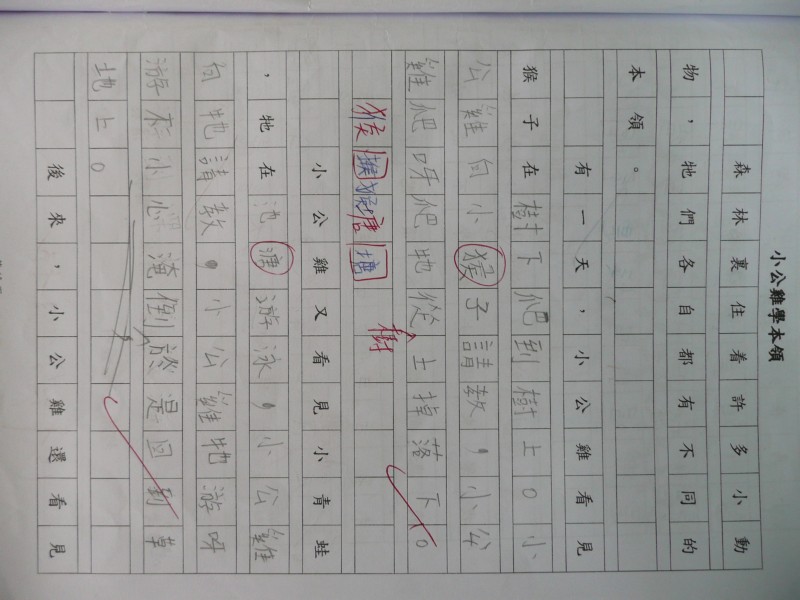 小公雞學本領
森林裏住着許多小動
物，牠們各自都有不同的
本領。
有一天，小公雞看見
猴子在樹下爬到樹上。小
公雞向小猴子請教，小公
雞爬呀爬牠從樹上掉落下。
猴猴猴塘塘
小公雞又看見小青蛙
，牠在池塘游泳，小公雞
向牠請教，小公雞牠游呀
游不小心淹倒於是回到草
地上。
後來，小公雞還看見